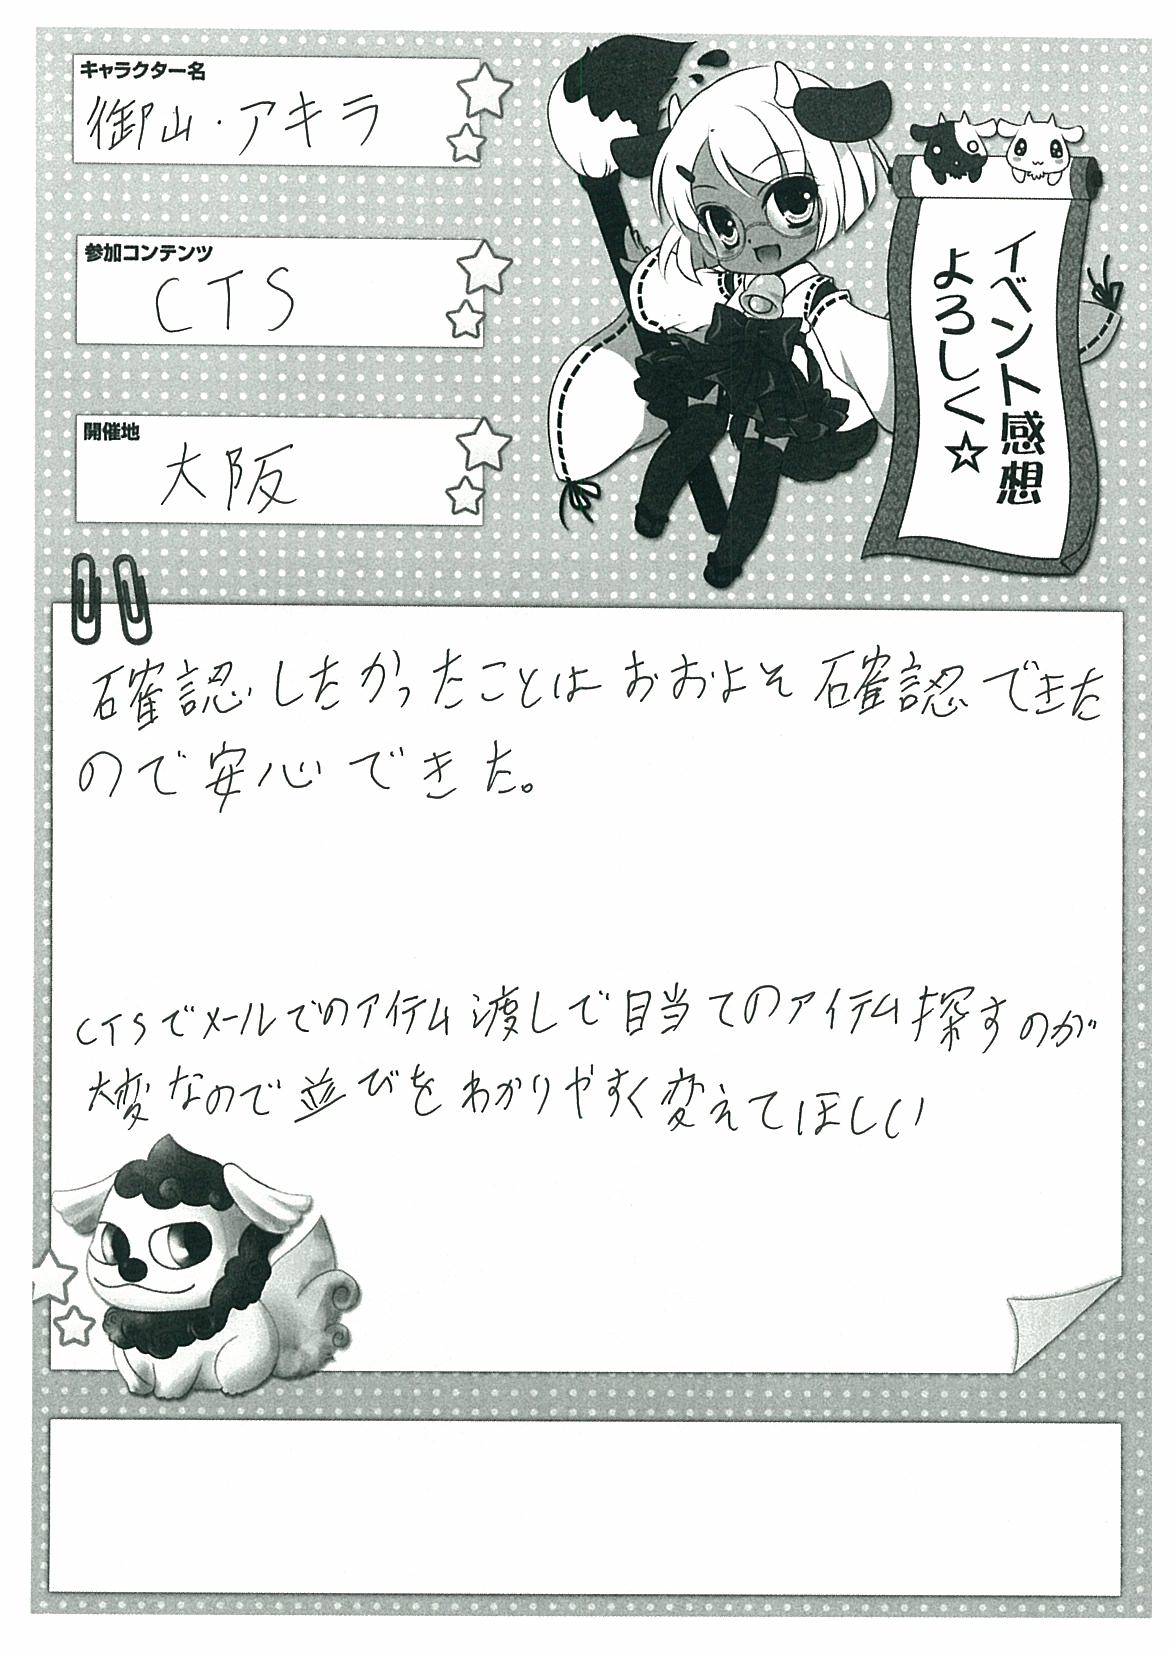 キャラクター名
御山・アキラ
参加コンテンツ
CTS
開催地
大阪
イベント感想
よろしく☆
確認したかったことはおおよそ確認できた
ので安心できた。
CTSでメールでのアイテム渡しで目当てのアイテム探すのが
大変なので並びをわかりやすく変えてほしい